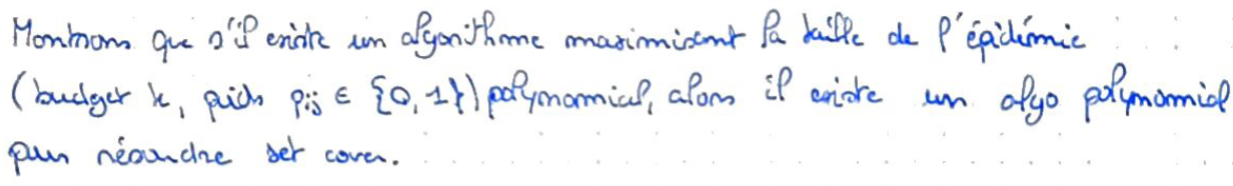 Montrons que s'il existe un algorithme maximisant la taille de l'épidémie
(budget k, poids pij ∈ {0, 1}) polynomial, alors il existe un algo polynomial
pour résoudre set cover.